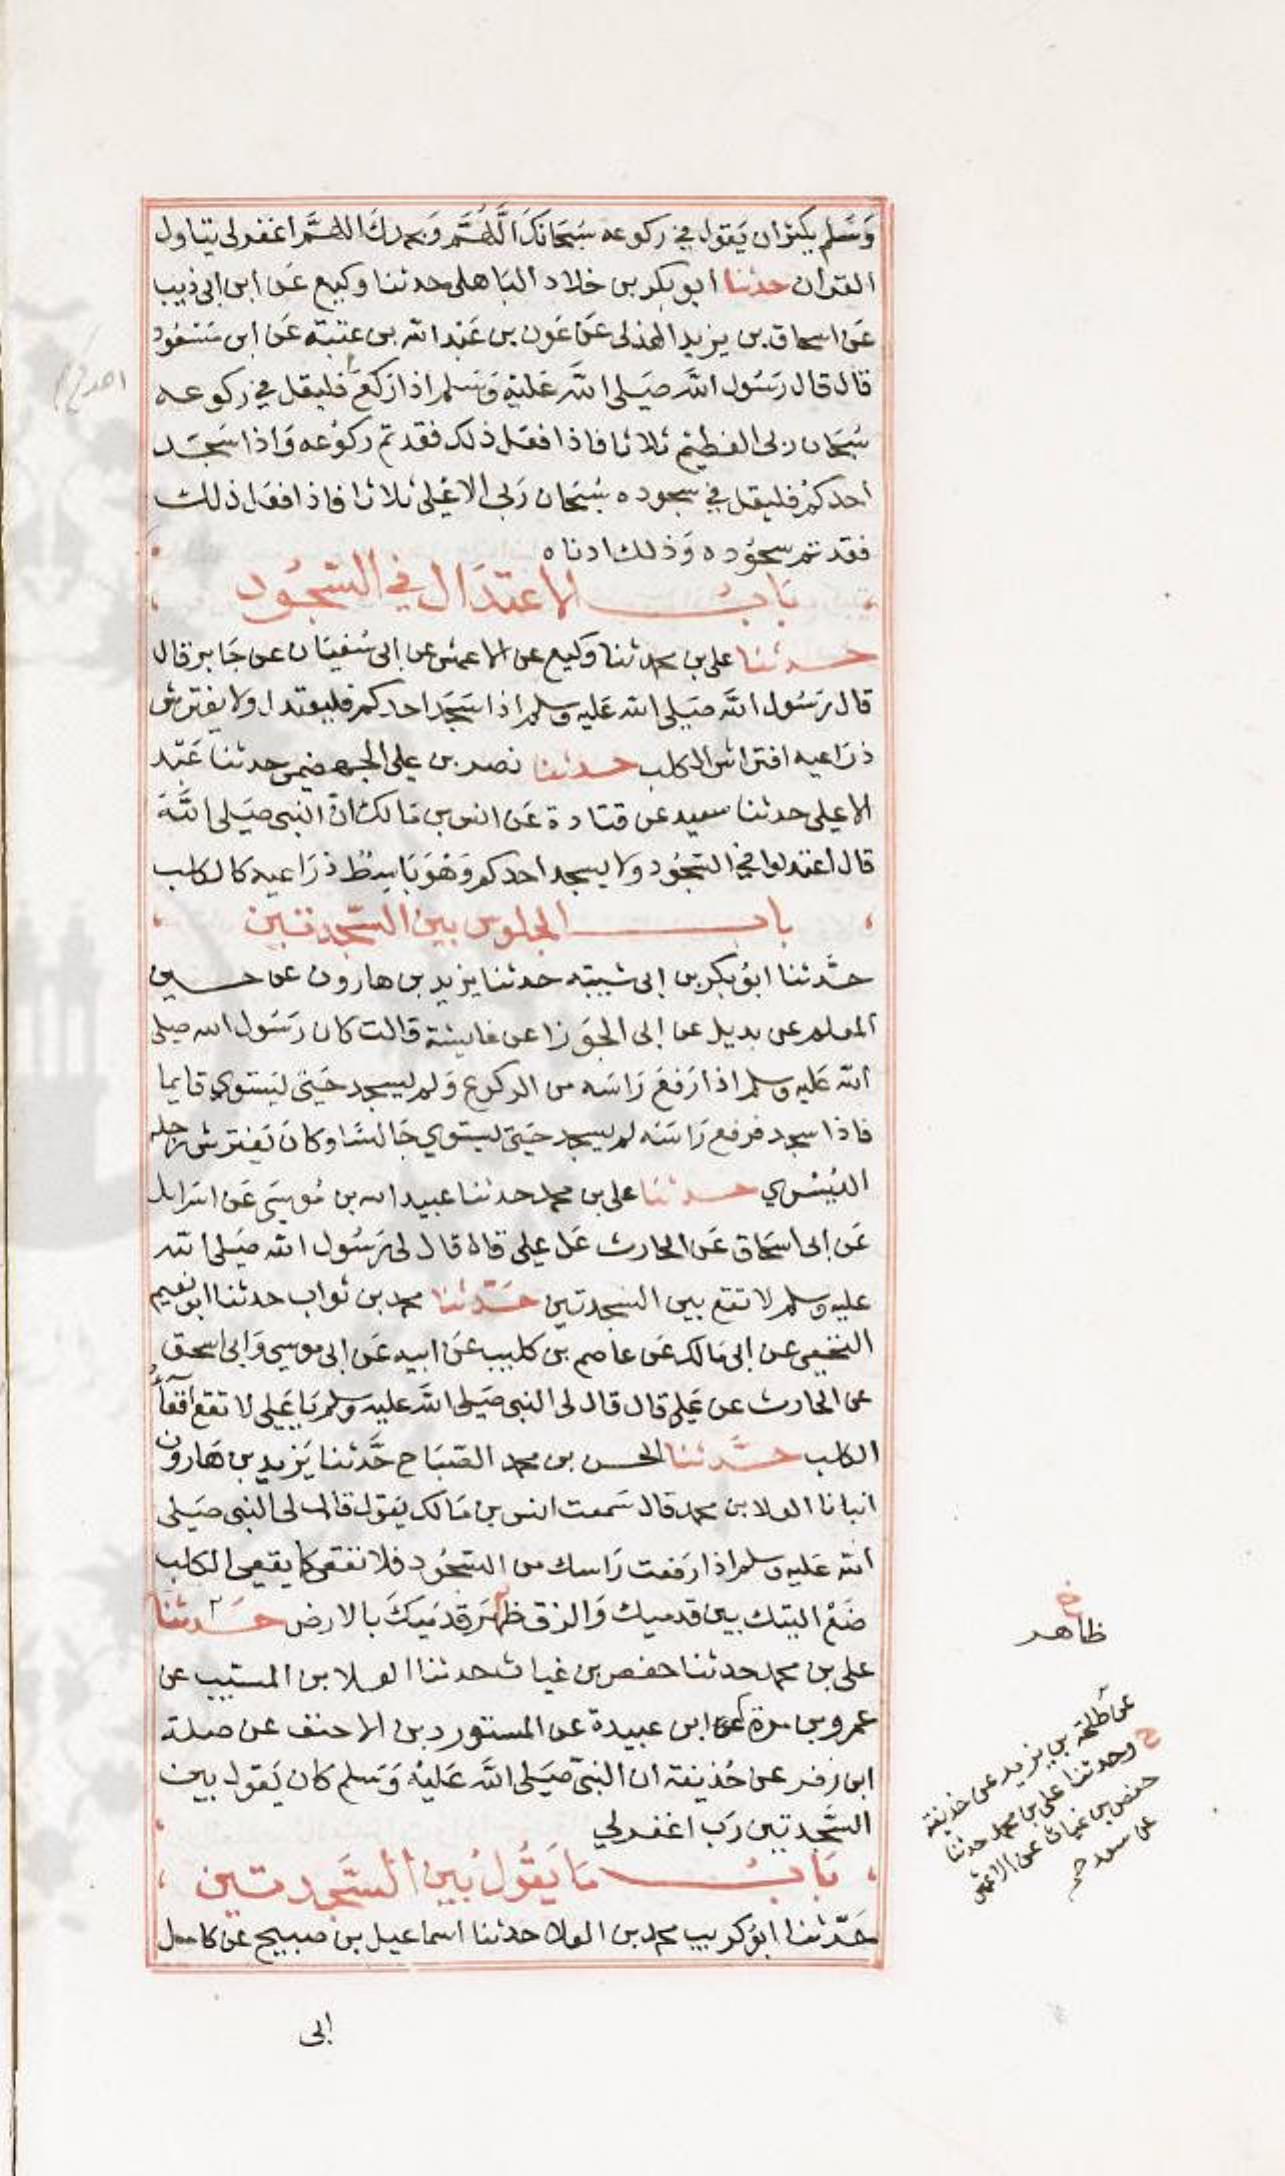 وَسَلم يكثر ان يَقول في ركوعه سُبحَانكَ اللَّهُمَّ وَبحمدكَ اللهمَّ اغفر لى يتاول
القران حدثنا ابو بكر بن خلاد البَاهلى حدثنا وكيع عَن ابن ابى ذيب
عَن اسحاق بن يزيد الهذلى عَن عَون بن عَبْد الله بن عتبة عَن ابن مَسْعُود
قال قال رَسُول اللَّه صَلى اللَّه عَليْه وَسَلم اذا ركعَ فليقل في ركوعه
سُبحَان ربى العَظيْم ثلاثا فاذا فعَل ذلك فقد تم ركوْعه وَاذا سَجَد
احدكمْ فليقل في سجوده سُبْحَان رَبى الاعْلى ثلاثا فاذا فعَل ذلك
فقد تم سجوْده وَذلك ادناه
بَابُ الاعتدَال في السّجُود
حدثنا على بن محمد ثنا وَكيع عن الاعمش عن ابى سُفيَان عن جَابر قال
قال رَسُول اللَّه صَلى الله عَليه وسلم اذا سَجَد احدكم فليعتدل ولا يفترش
ذرَاعيه افتراش الكلب حدثنا نصر بن على الجهضمى حدثنا عَبْد
الاعلى حدثنا سعيد عن قتادة عَن انس بن مَالك انّ النبى صَلى اللَّهَ
قال اعتدلوا في السّجُود ولا يسجد احدكم وَهُوَ بَاسِطٌ ذرَاعيه كالكلب
باب الجلوس بين السّجدتين
حدَّثنا ابوُ بكر بن ابى شيبة حدثنا يزيد بن هارون عن حسين
المعلم عن بديل عن ابى الجوَزا عن عَايشة قالت كان رَسُول الله صلى
الله عَليه وسلم اذا رَفعَ رَاسَه من الركوع وَلم يسجد حَتى ليَستوي قايما
فاذا سجد فرفع رَاسَه لم يسجد حَتى ليستوي جَالسًا وكانَ يَفترش رجله
اليُسْري حدثنا على بن محمد حدثنا عبيد الله بن مُوسَى عَن اسَرايل
عَن ابى اسحَاق عَن الحارث عَن على قال قال لى رَسُول الله صَلى الله
عليه وسلم لا تقع بين السجدتين حدّثنا محمد بن ثواب حدثنا ابو نعيم
النخعى عن ابى مَالك عَن عَاصم بن كليب عَن ابيه عَن ابى موسى وَابى اسحق
عن الحارث عن عَلى قال قال لى النبى صَلى اللَّه عليه وسلم يَا عَلى لا تقع اقعَاً
الكلب حدَّثنا الحسن بن محمد الصَباح حَدَّثنا يَزيد بن هَارون
انبانا العلا بن محمد قال سَمعت انس بن مَالك يَقول قال لى النبى صَلى
الله عَليه وسلم اذا رَفعت رَاسك من السّجُود فلا تقعى كما يقعى الكلب
ضَعْ اليتك بين قدميك وَالزق ظهَر قدَميكَ بالارض حدثنا
على بن محمد حدثنا حفص بن غياث حدثنا العلا بن المسيب عن
عمرو بن مرة عَن ابى عبيدة عن المستورد بن الاحنف عن صلة
ابن زفر عن حُذيفة ان النبى صَلى اللَّه عَليْه وَسَلم كان يَقول بين
السَّجدتين رَب اغفر لي
بَابُ مَا يَقُولُ بَيْن السَّجدتين
حَدّثنا ابوُ كريب محمد بن العلا حدثنا اسماعيل بن صبيح عَن كامل
ابى
احدكم
خ
ظاهر
عن طلحة بن يزيد عن حذيفة
ح وحدثنا على بن محمد حدثنا
حفص بن غياث عن الاعمش
عن سعد